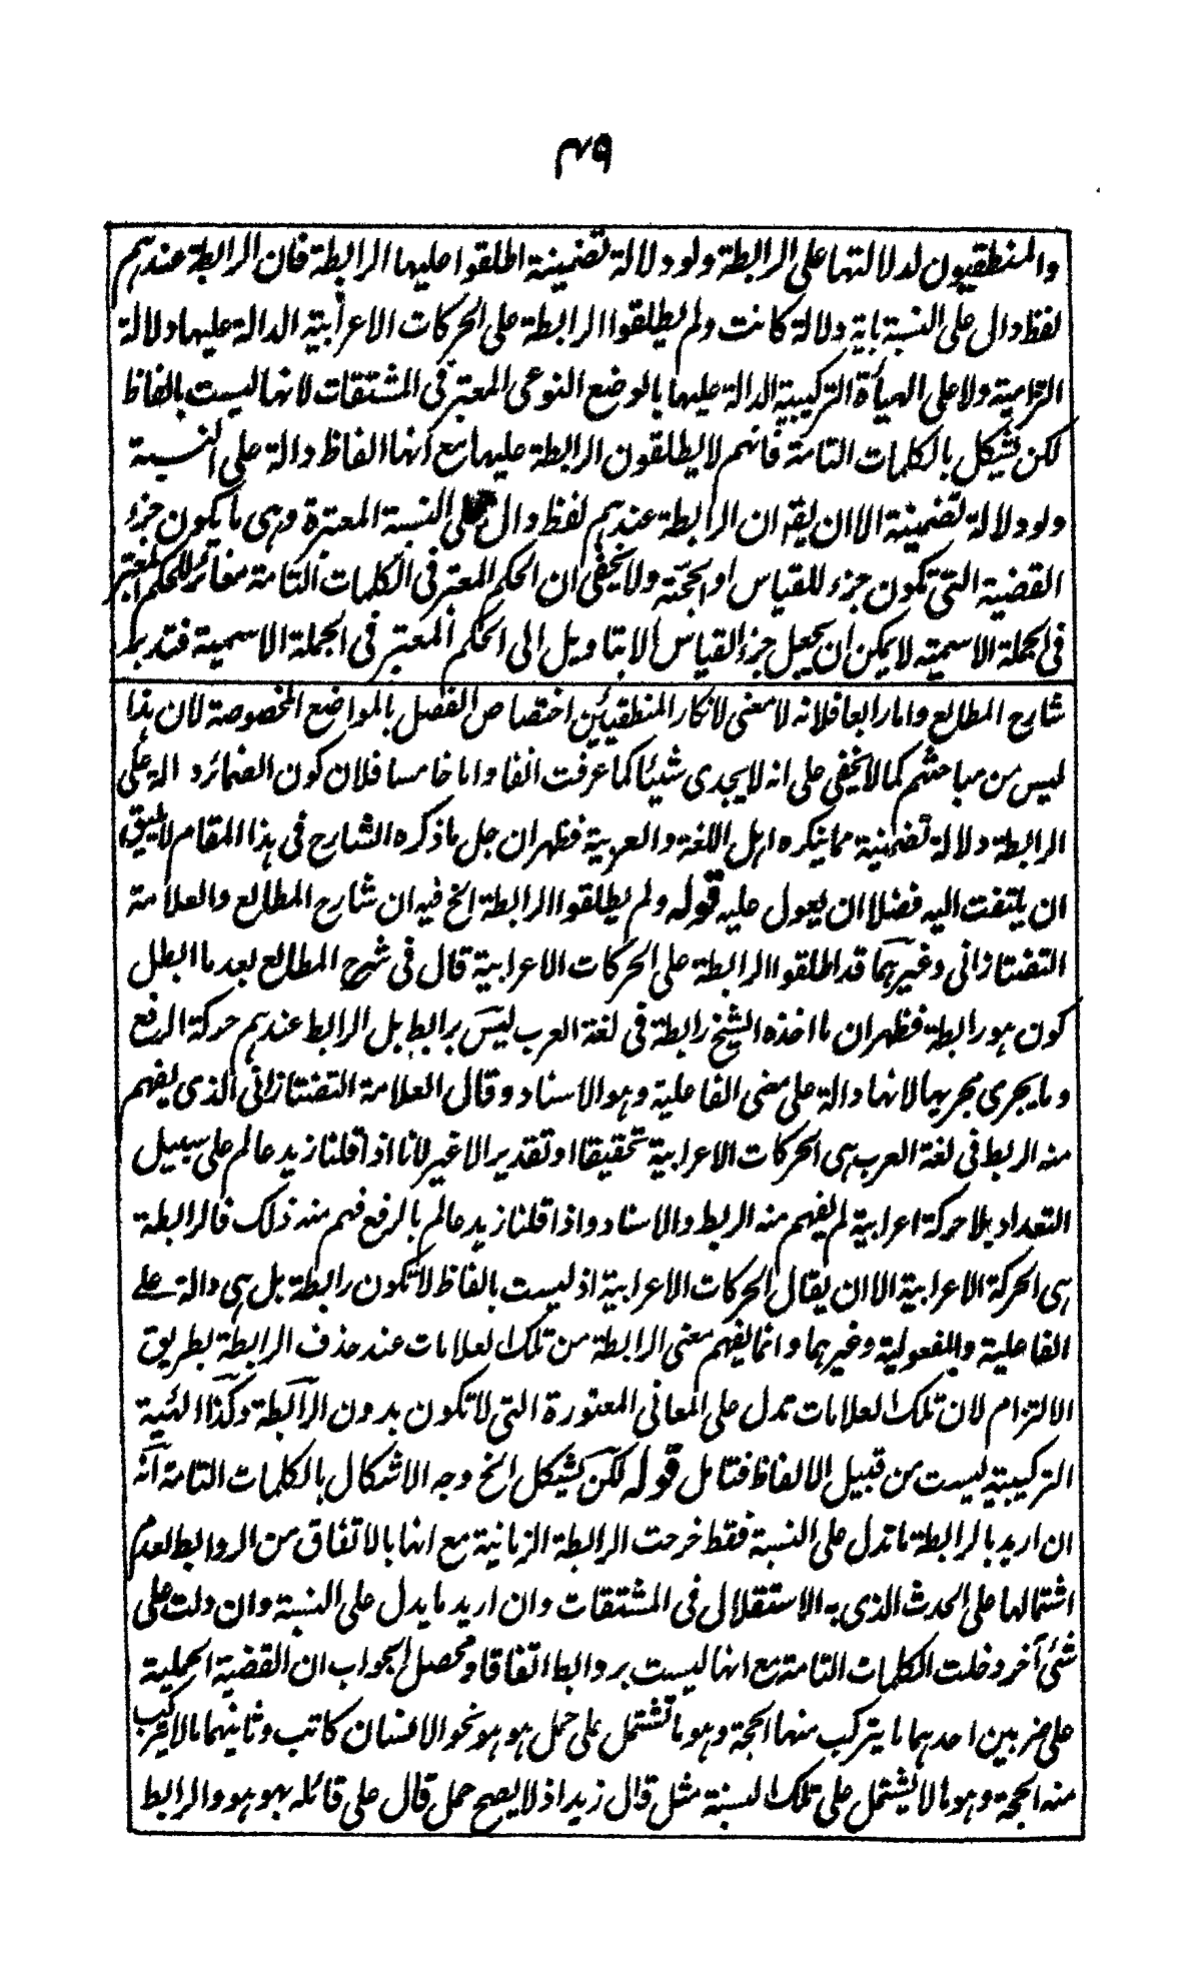 ٤٩
والمنطقيون لدلالتها على الرابطة ولو دلالة تضمنية اطلقوا عليها الرابطة فان الرابطة عندهم
لفظ دال على النسبة باية دلالة كانت ولم يطلقوا الرابطة على الحركات الاعرابية الدالة عليها دلالة
التزامية ولا على الهيأة التركيبية الدالة عليها بالوضع النوعي المعتبر في المشتقات لانها ليست بالفاظ
لكن يشكل بالكلمات التامة فانهم لا يطلقون الرابطة عليها مع انها الفاظ دالة على النسبة
ولو دلالة تضمنية الا ان يقه ان الرابطة عندهم لفظ دال على النسبة المعتبرة وهي ما يكون جزء
القضية التي تكون جزء للقياس او الحجة ولا يخفى ان الحكم المعتبر في الكلمات التامة مغائر للحكم المعتبر
في الجملة الاسمية لا يمكن ان يجعل جزء القياس الا بتاويل الى الحكم المعتبر في الجملة الاسمية فتدبر
شارح المطالع واما رابعا فلانه لا معنى لانكار المنطقيين اختصاص الفصل بالمواضع المخصوصة لان هذا
ليس من مباحثهم كما لا يخفى على انه لا يجدي شيئا كما عرفت انفا واما خامسا فلان كون الضمائر دالة على
الرابطة دلالة تضمنية مما ينكره اهل اللغة والعربية فظهر ان جل ما ذكره الشارح في هذا المقام لا يليق
ان يلتفت اليه فضلا ان يعول عليه قوله ولم يطلقوا الرابطة الخ فيه ان شارح المطالع والعلامة
التفتازاني وغيرهما قد اطلقوا الرابطة على الحركات الاعرابية قال في شرح المطالع بعد ما ابطل
كون هو رابطة فظهر ان ما اخذه الشيخ رابطة في لغة العرب ليس برابط بل الرابط عندهم حركة الرفع
وما يجري مجريها لانها دالة على معنى الفاعلية وهو الاسناد وقال العلامة التفتازاني الذي يفهم
منه الربط في لغة العرب هي الحركات الاعرابية تحقيقا او تقديرا لا غير لانا اذا قلنا زيد عالم على سبيل
التعداد بلا حركة اعرابية لم يفهم منه الربط والاسناد واذا قلنا زيد عالم بالرفع فهم منه ذلك فالرابطة
هي الحركة الاعرابية الا ان يقال الحركات الاعرابية اذ ليست بالفاظ لا تكون رابطة بل هي دالة على
الفاعلية والمفعولية وغيرهما وانما يفهم معنى الرابطة من تلك العلامات عند حذف الرابطة بطريق
الالتزام لان تلك العلامات تدل على المعاني المعتورة التي لا تكون بدون الرابطة وكذا الهيئة
التركيبية ليست من قبيل الالفاظ فتامل قوله لكن يشكل الخ وجه الاشكال بالكلمات التامة انه
ان اريد بالرابطة ما تدل على النسبة فقط خرجت الرابطة الزمانية مع انها بالاتفاق من الروابط لعدم
اشتمالها على الحدث الذي به الاستقلال في المشتقات وان اريد ما يدل على النسبة وان دلت على
شئ آخر دخلت الكلمات التامة مع انها ليست بروابط اتفاقا ومحصل الجواب ان القضية الحملية
على ضربين احدهما ما يتركب منها الحجة وهو ما تشتمل على حمل هو هو نحو الانسان كاتب وثانيهما ما لا يتركب
منه الحجة وهو ما لا يشتمل على تلك النسبة مثل قال زيد اذ لا يصح حمل قال على قائله بهو هو والرابط